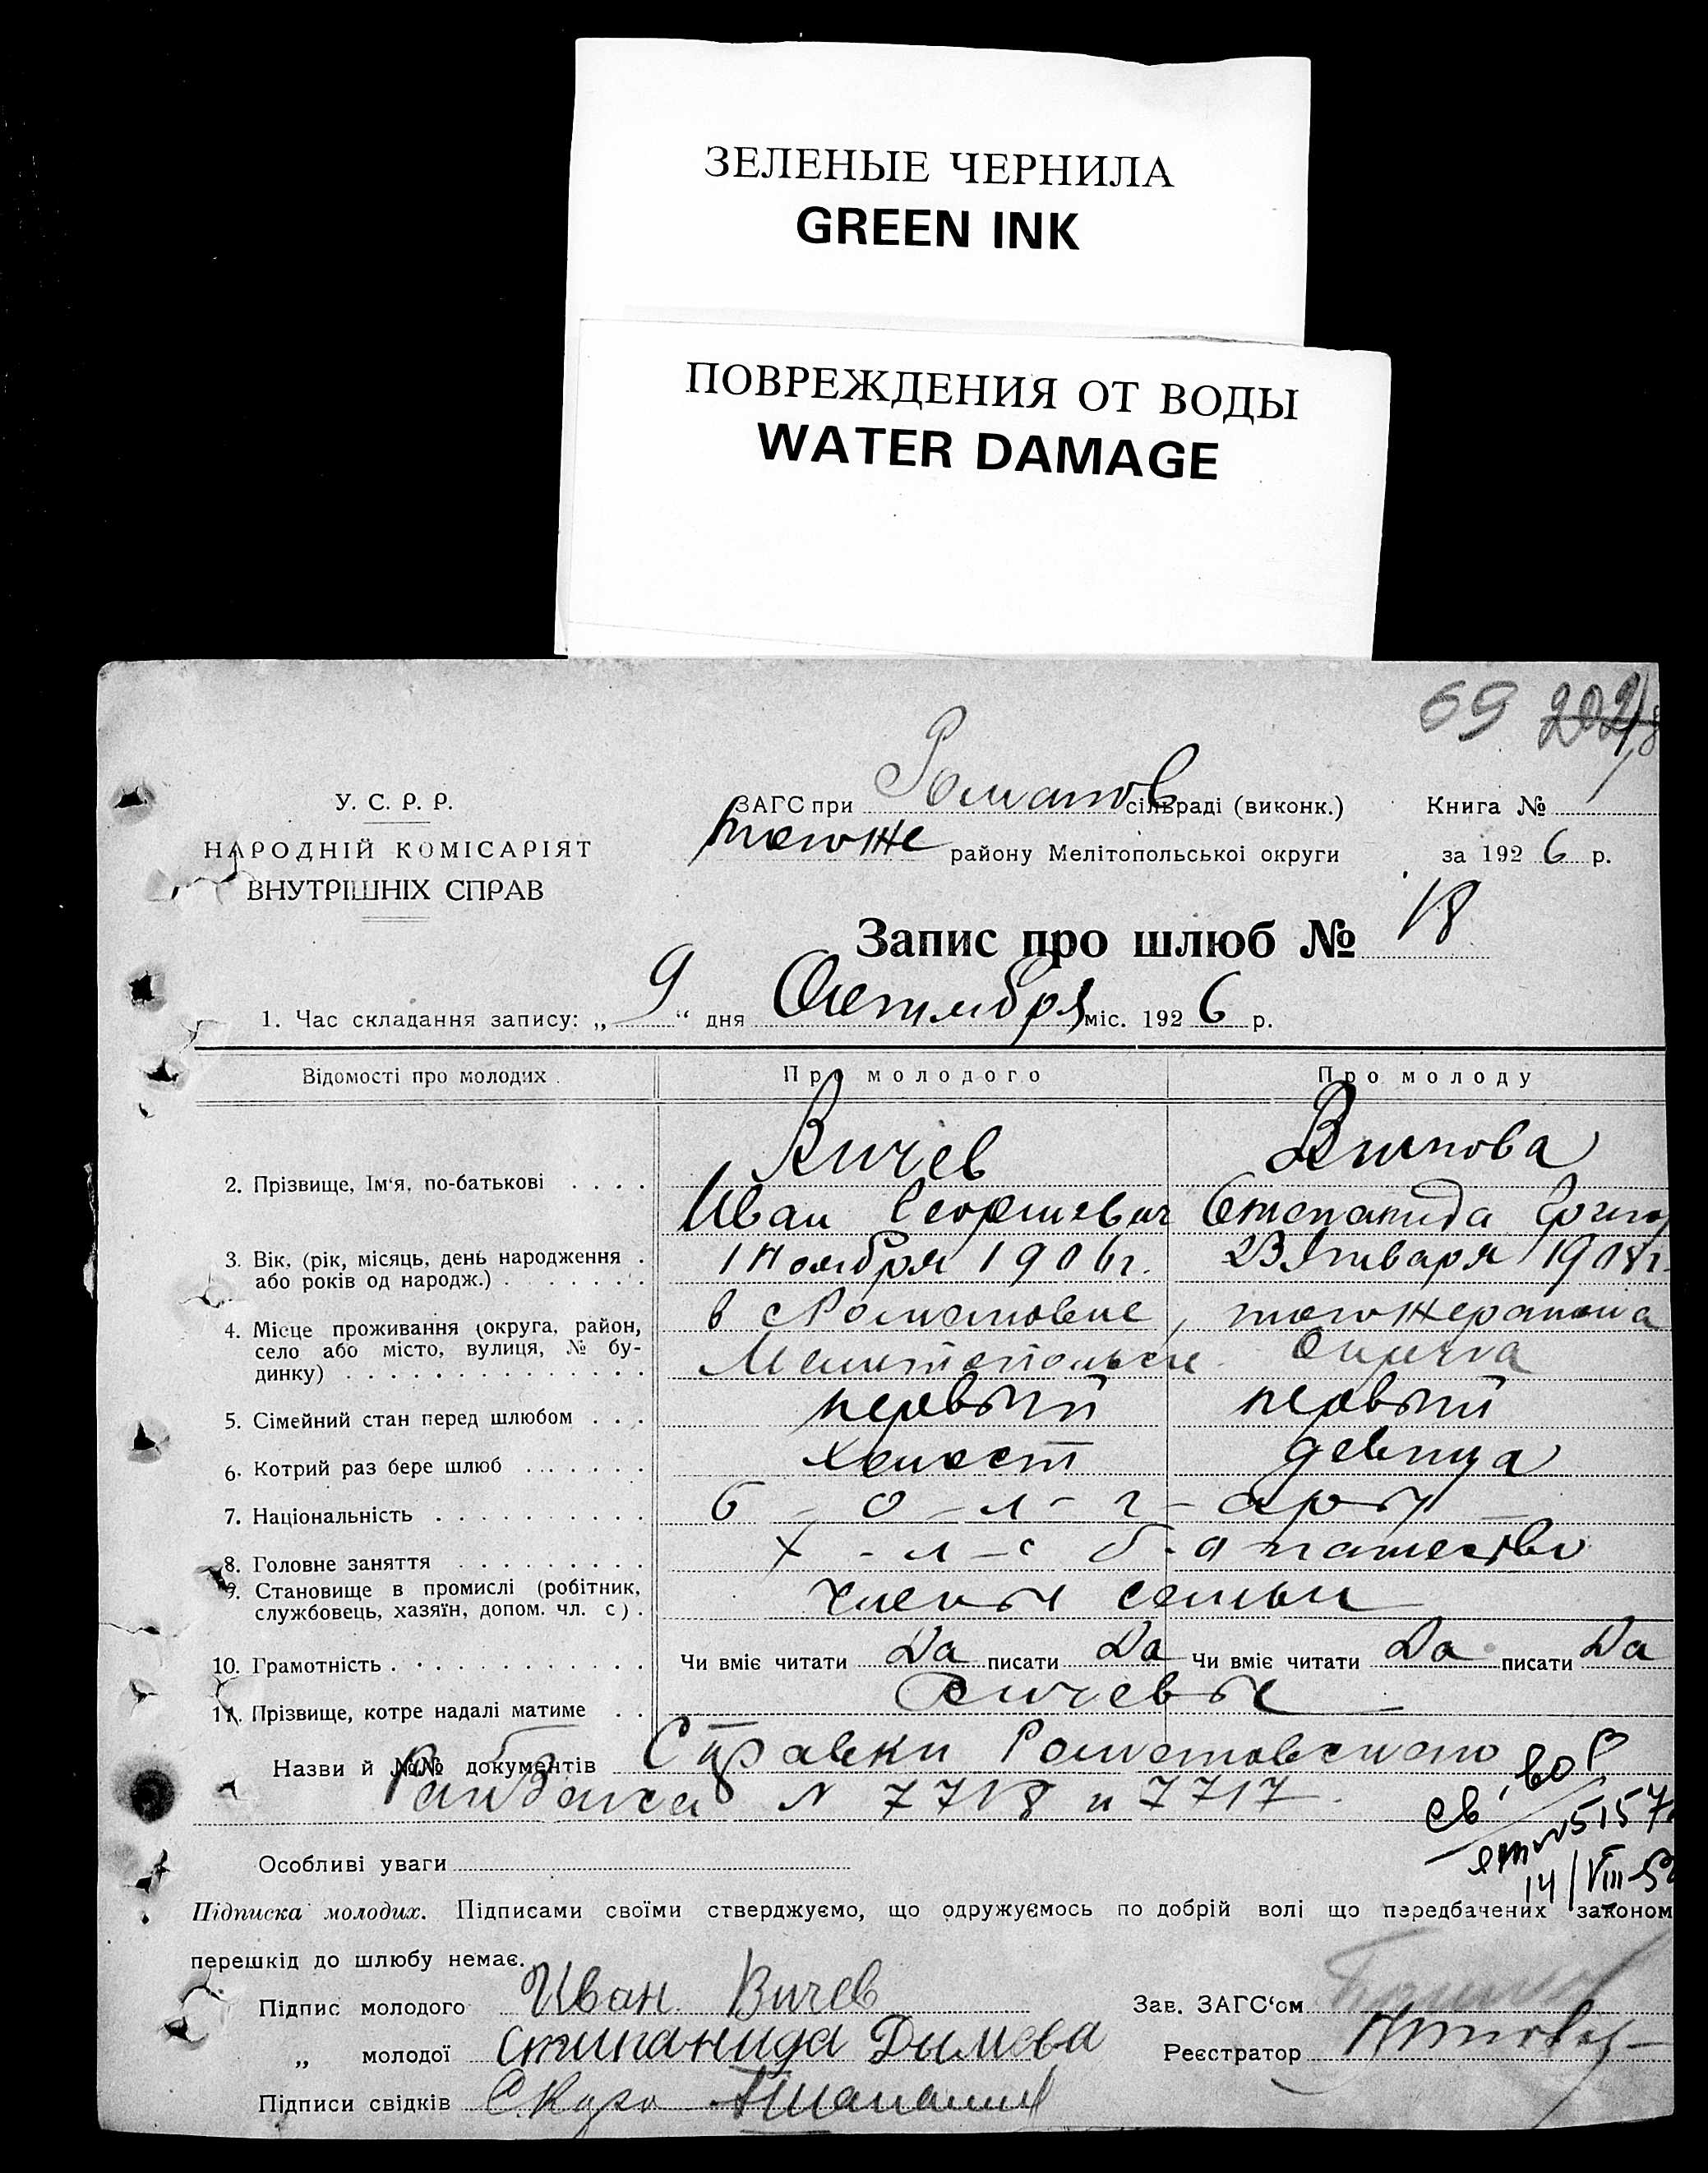 ЗЕЛЕНЫЕ ЧЕРНИЛА
GREEN INK
ПОВРЕЖДЕНИЯ ОТ ВОДЫ
WATER DAMAGE
69 202
У. С. Р. Р.
НАРОДНІЙ КОМІСАРІЯТ
ВНУТРІШНІХ СПРАВ
ЗАГС при Романов сільраді (виконк.)
того же району Мелітопольської округи
Книга №
за 1926 р.
Запис про шлюб № 18
1. Час складання запису: „ 9 “ дня Октября міс. 1926 р.
Відомості про молодих Про молодого Про молоду
Вичев
2. Прізвище, Ім'я, по-батькові . . . . Иван Георгиевич Степанида Григор
3. Вік, (рік, місяць, день народження . 1 Ноября 1906 г. 23 Января 1908 г.
або років од народж.) . . . . . . .
4. Місце проживання (округа, район, в с Романовке, того же района
село або місто, вулиця, № бу-
динку) . . . . . . . . . . . . . . Мелитопольск Округа
5. Сімейний стан перед шлюбом . . . первый первый
6. Котрий раз бере шлюб . . . . . . холост девица
7. Національність . . . . . . . . . . б - о - л - г - ары
8. Головне заняття . . . . . . . . . х - л - е б - о пашество
9. Становище в промислі (робітник, члены семьи
службовець, хазяїн, допом. чл. с) .
10. Грамотність . . . . . . . . . . . Чи вміє читати Да писати Да Чи вміє читати Да писати Да
11. Прізвище, котре надалі матиме . . Вичевы
Назви й №№ документів Справки Романовского
N 7718 и 7717.
14/VIII
Особливі уваги
Підписка молодих. Підписами своїми стверджуємо, що одружуємось по добрій волі що передбачених законом
перешкід до шлюбу немає.
Підпис молодого Иван Вичев Зав. ЗАГС'ом
„ молодої Стипанида Дымова Реєстратор
Підписи свідків